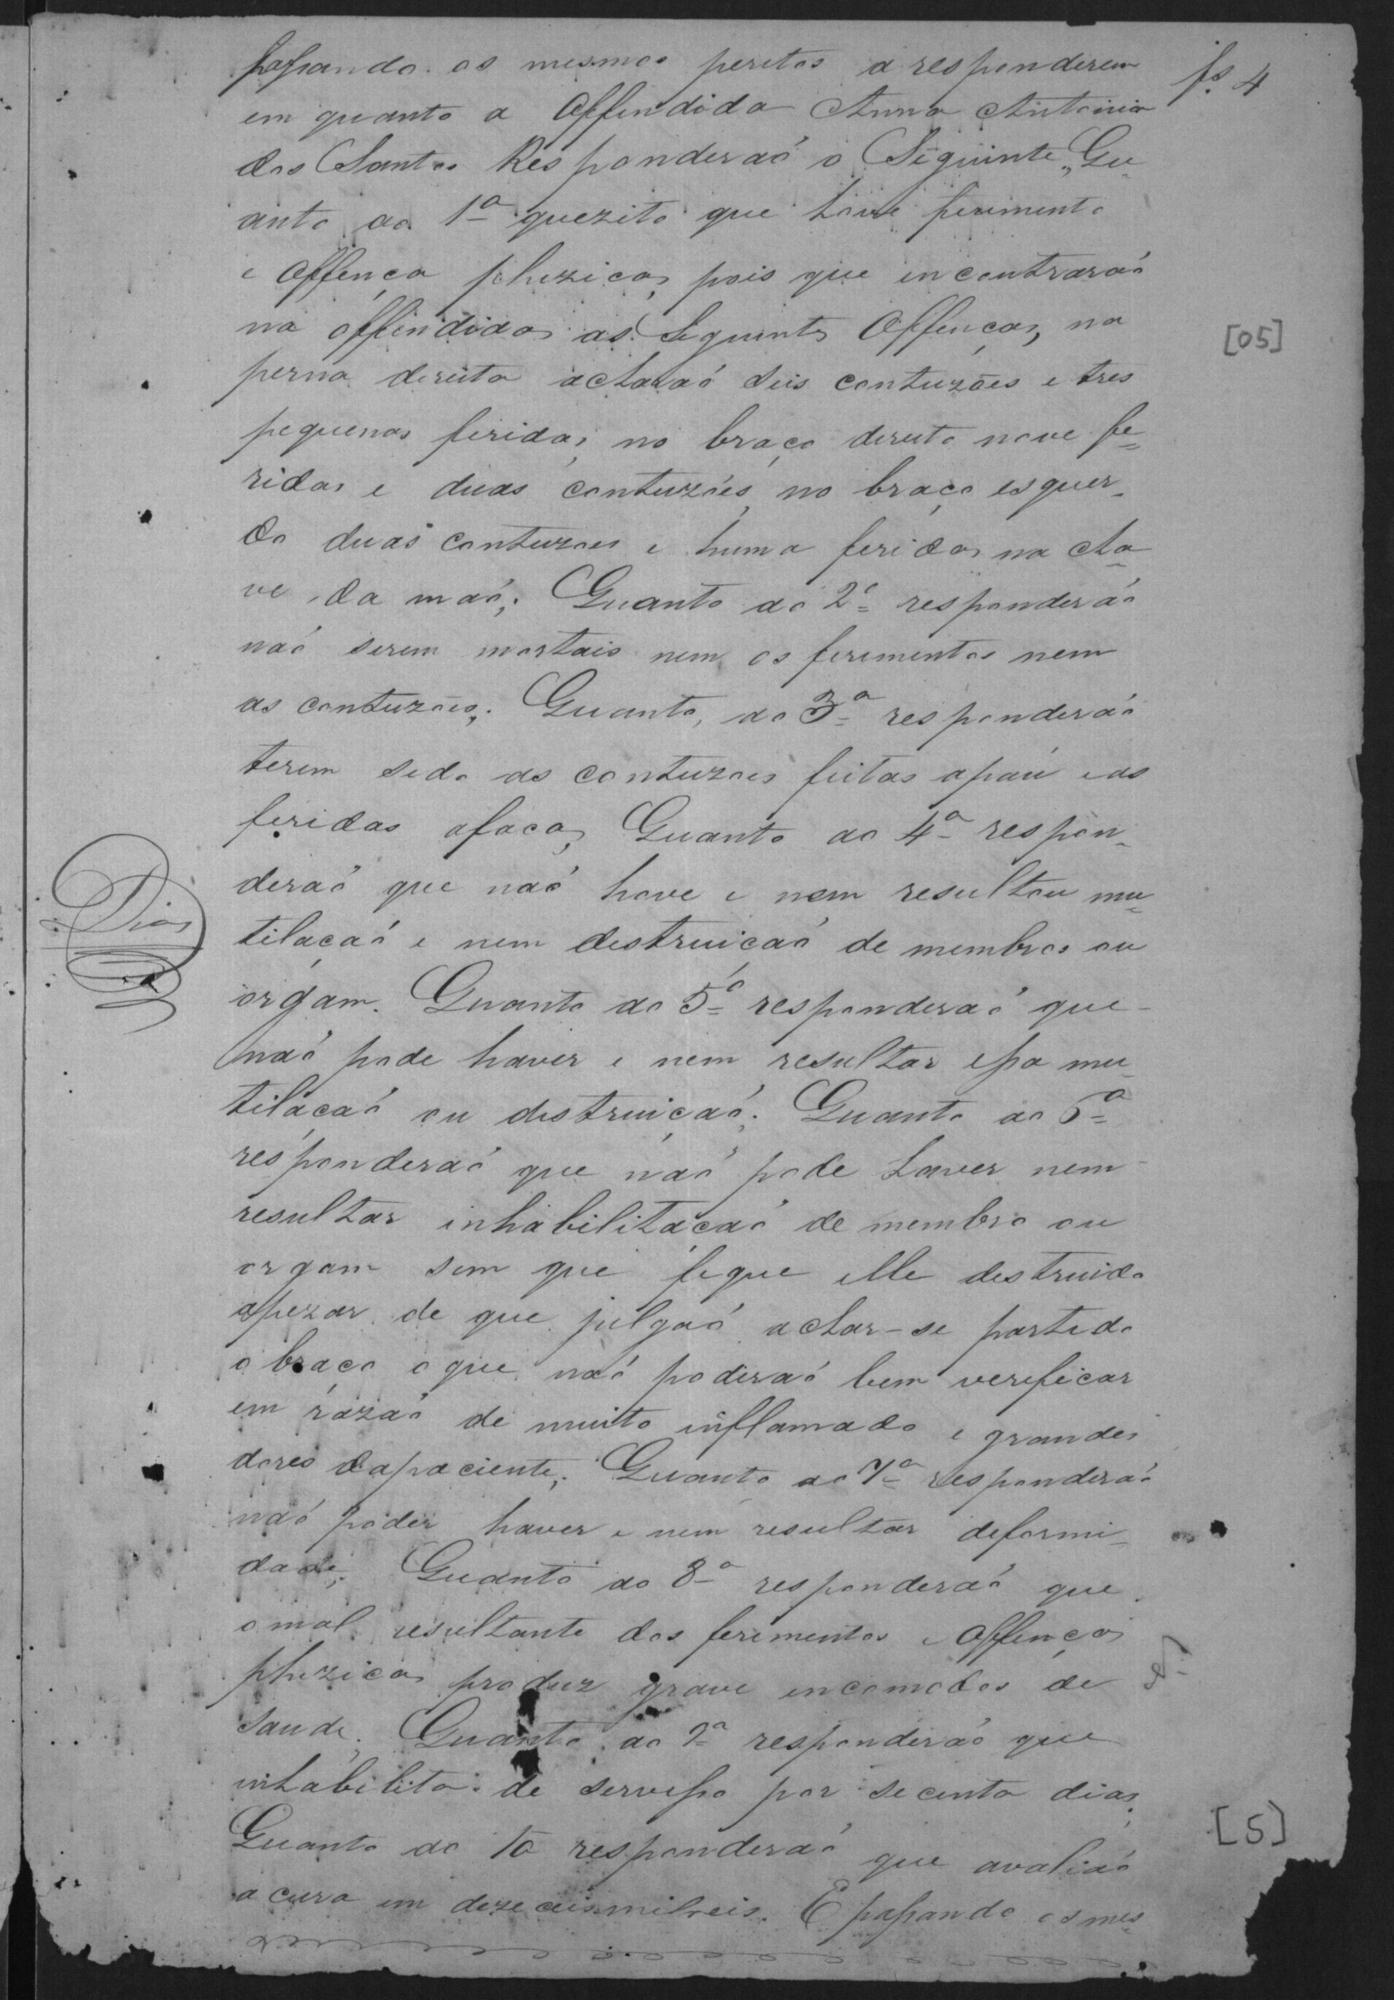 passando os mesmos peritos a responderem
fs. 4
em quanto a offendida Anna Antonia
dos Santos Responderaõ o Siguinte, Qu-
anto ao 1º quezito que hove ferimento
e offença phizica, pois que encontraraõ
na offendida as Seguintes Offenças, na
[05]
perna direita acharaõ seis contuzões e tres
pequenas feridas, no braço direito nove fe-
ridas e duas contuzões, no braço esquer-
do duas contuzoes e huma ferida na cha-
ve da maõ; Quanto ao 2º responderaõ
naõ serem mortais nem os ferimentos nem
as contuzoes; Quanto, ao 3º responderaõ
terem sido as contuzoes feitas apau e as
feridas afaca, Quanto ao 4º respon-
deraõ que naõ hove e nem resultou mu-
Dias
tilacaõ e nem destruicaõ de membros ou
orgam. Quanto ao 5º responderaõ que
naõ pode haver e nem resultar essa mu-
tilaçaõ ou distruiçaõ; Quanto ao 6º
responderaõ que naõ pode haver nem
resultar inhabilitacaõ de membro ou
orgam sem que fique elle destruido
apezar de que julgaõ achar-se partido
o braço o que naõ poderaõ bem verificar
em razaõ de muito inflamado e grandes
dores dapaciente; Quanto ao 7º responderaõ
naõ poder haver e nem resultar deformi-
dade; Quanto ao 8º responderaõ que
o mal resultante dos ferimentos e offenças
phizicas produz grave encomodos de
saude. Quanto ao 9º responderaõ que
inhabilita de servisso por secenta dias;
[5]
Quanto ao 10 responderaõ que avaliaõ
a cura em dezeceismilreis. E passando os mes-